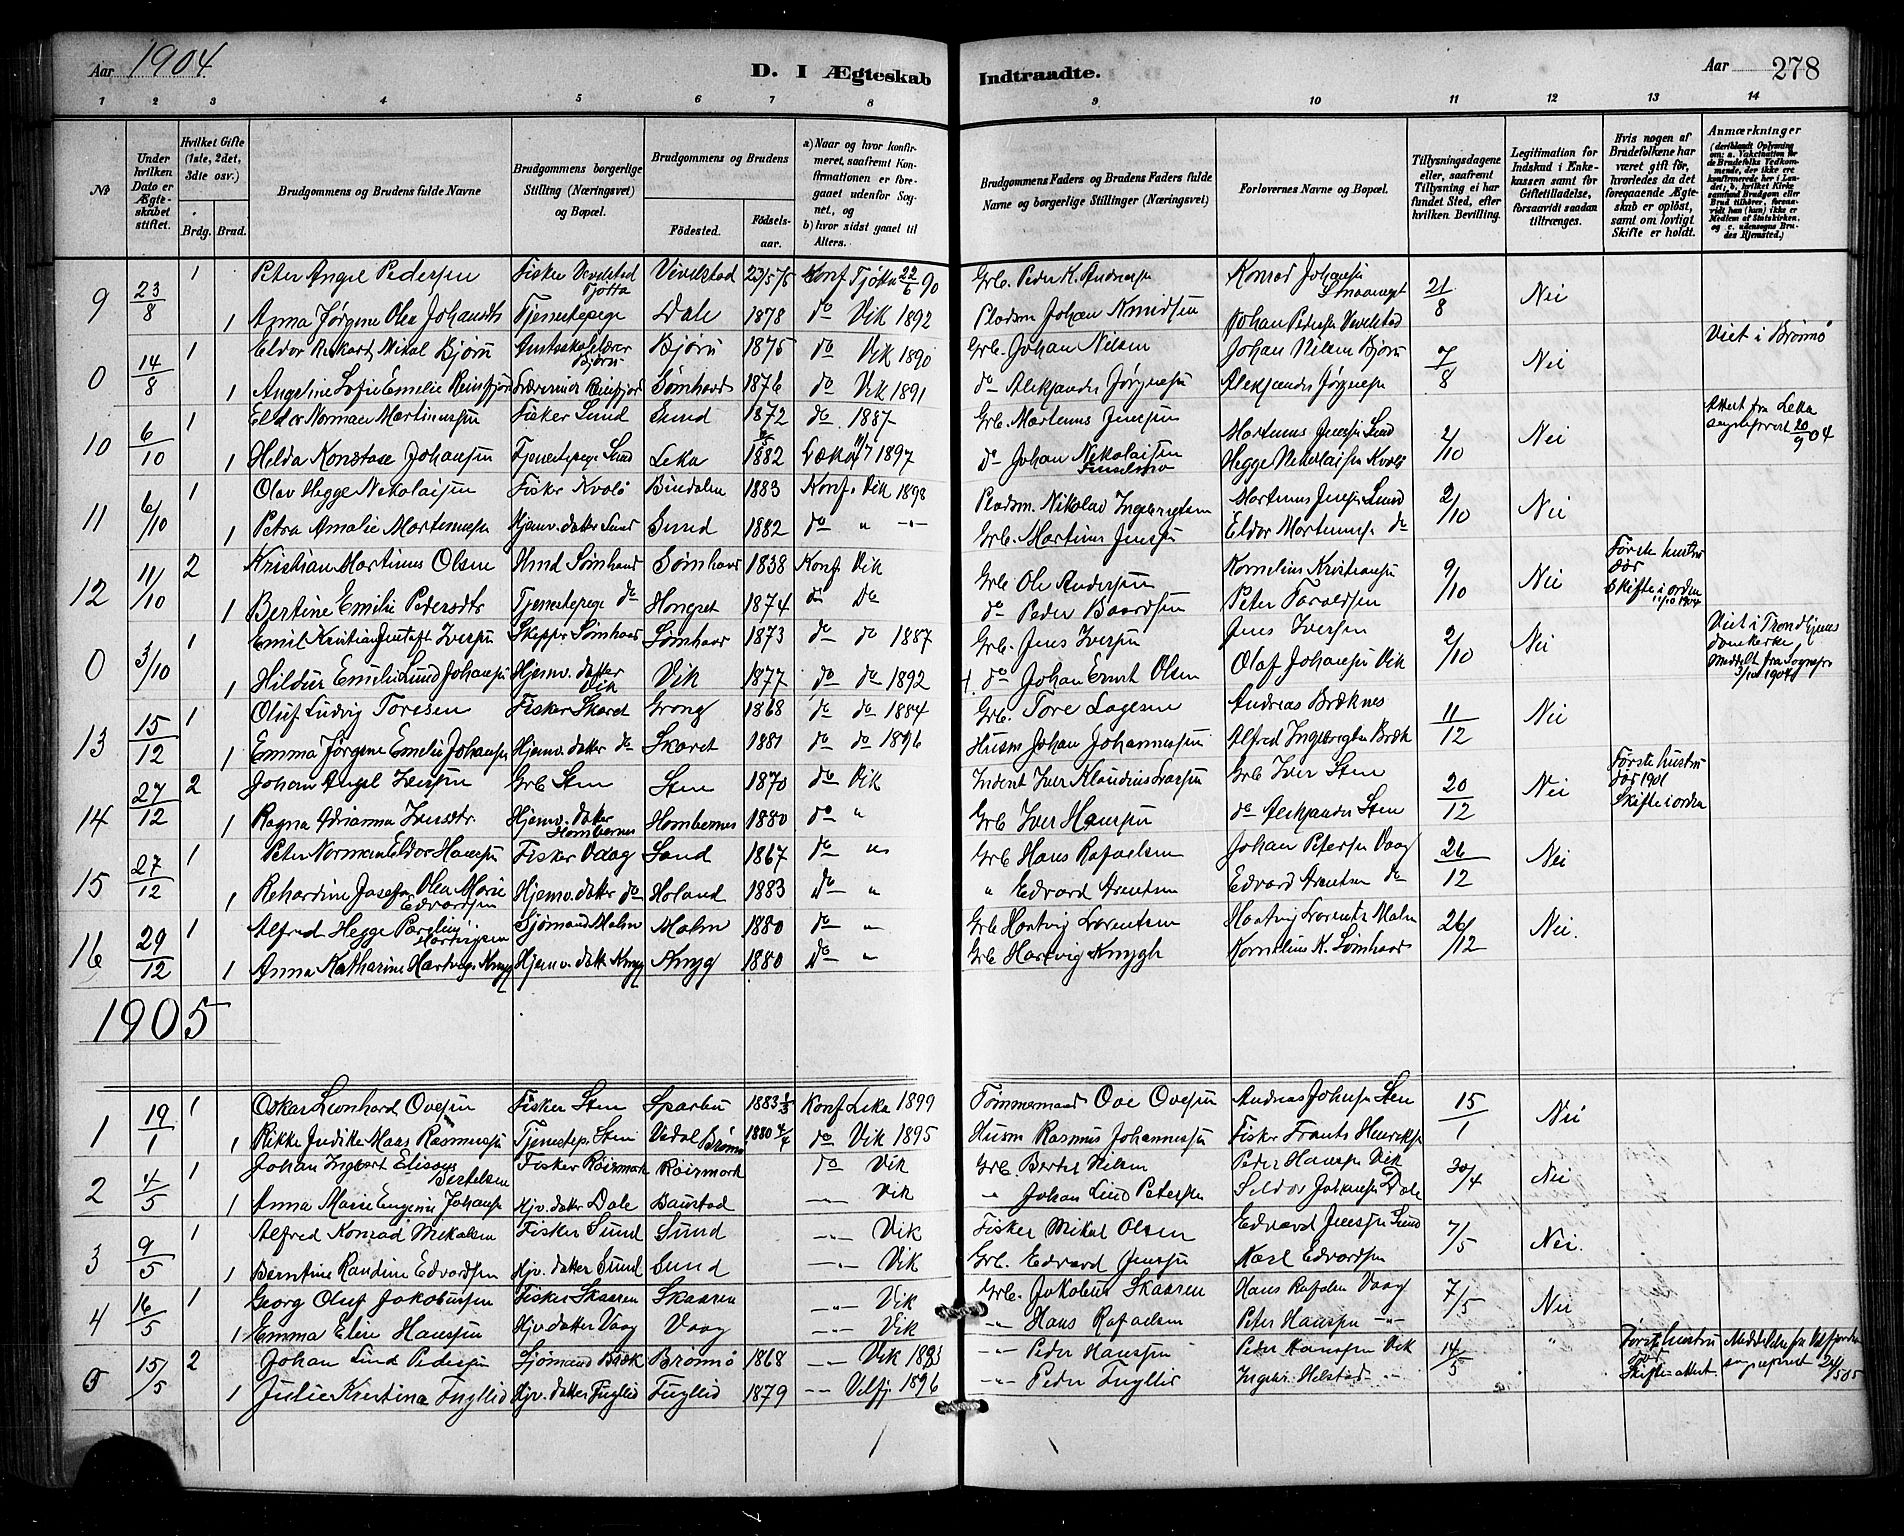 Aar 1904
D. I Ægteskab Indtraadte.
Aar 278
1 2 3 4 5 6 7 8 9 10 11 12 13 14
No
Under hvilken Dato er Ægteskabet stiftet.
Hvilket Gifte (1ste, 2det, 3die osv.)
Brdg. Brud.
Brudgommens og Brudens fulde Navne
Brudgommens borgerlige Stilling (Næringsvei) og Bopæl.
Brudgommens og Brudens
Födested.
Födselsaar.
a) Naar og hvor konfirmeret, saafremt Konfirmationen er foregaaet udenfor Sognet, og b) hvor sidst gaaet til Alters.
Brudgommens Faders og Brudens Faders fulde Navne og borgerlige Stillinger (Næringsvei)
Forlovernes Navne og Bopæl.
Tillysningsdagene eller, saafremt Tillysning ei har fundet Sted, efter hvilken Bevilling.
Legitimation for Indskud i Enkekassen samt for Giftetilladelse, forsaavidt saadan tiltrænges.
Hvis nogen af Brudefolkene har været gift för, hvorledes da det foregaaende Ægteskab er oplöst, samt om lovligt Skifte er holdt.
Anmærkninger (deriblandt Oplysning om: a. Vakcination for de Brudefolks Vedkommende, der ikke ere konfirmerede her i Landet; b. hvilket Kirkesamfund Brudgom eller Brud tilhörer, forsaavidt han (hun) ikke er Medlem af Statskirken, og c. udensogns Brudes Hjemsted.)
9 23/8 1 Peter Angel Pedersen Fisker Vevelstad Tjøtta Vivelstad 23/5 75 Konf Tjøtta 22/6 90 Grb. Peder K. Andersen Konrad Johansen 21/8 Nei
1 Anna Jørgine Olea Johansdtr Tjenestepige Dale 1878 do Vik 1892 Pladsm Johan Knudsen Johan Pedersen Vevelstad
0 14/8 1 Eldor Rikard Mikal Bjørn Amtsskolelærer Bjørn Bjørn 1875 do Vik 1890 Grb. Johan Nilsen Johan Nilsen Bjørn 7/8 Nei Viet i Brønnø
1 Angeline Sofie Emelie Reinfjord Reinfjord Sømhovd 1876 do Vik 1891 do Aleksander Jørgensen Aleksander Jørgensen
10 6/10 1 Eldor Norman Martinussen Fisker Sund Sund 1872 do 1887 Grb. Martenus Jensen Martenus Jensen Sund 2/10 Nei Attest fra Leka sogneprest 20/9 04
1 Hilda Konstase Johansen Tjenestepige Sund Leka 1882 Læka 1897 do Johan Nikolaisen Hegge Nikolaisen Kvolø
11 6/10 1 Olav Hegge Nikolaisen Fisker Kvolø Bindalen 1883 Konf. Vik 1898 Pladsm. Nikolai Ingebrigtsen Martenus Jensen Sund 2/10 Nei
1 Petra Amalie Martenussen Hjemv. datter Sund Sund 1882 do " -"- Grb. Martinus Jensen Eldor Martenussen do
12 11/10 2 Kristian Martinus Olsen Hmd Sømhovd Sømhovd 1838 Konf Vik Grb Ole Andersen Kornelius Kristiansen 9/10 Nei Første hustru død Skifte i orden 11/10 1904
1 Bertine Emilie Pedersdtr Tjenestepige do Hongset 1874 do Do do Peder Baardsen Peter Toroldsen
0 3/10 1 Emil Kristian Gustaft Iversen Skipper Sømhovd Sømhovd 1873 do do 1887 Grb. Jens Iversen Jens Iversen 2/10 Nei Viet i Trondhjems domkirke Meddelt fra Sognepr 3/10 1904
1 Hildur Emelie Lund Johansen Hjemv. datter Vik Vik 1877 do do 1892 do Johan Ernst Olsen Olaf Johansen Vik
13 15/12 1 Oluf Ludvig Toresen Fisker Skaret Grong 1868 do do 1884 Grb. Tore Lagesen Andreas Bræknes 11/12 Nei
1 Emma Jørgene Emelie Johansen Hjemv. datter do Skaret 1881 do do 1896 Husm Johan Johannessen Alfred Ingebrigtsen Bræk
14 27/12 2 Johan Angel Iversen Grb Sten Sten 1870 do Vik Inderst Iver Klaudius Larsen Grb Iver Sten 20/12 Nei Første hustru død 1901 Skifte i orden
1 Ragna Adrianna Iversdtr. Hjemv. datter Hombernes Hombernes 1880 do " Grb Iver Hansen do Aleksander Sten
15 27/12 1 Peter Norman Eldor Hansen Fisker Vaag Sand 1867 do " Grb Hans Rafaelsen Johan Petersen Vaag 26/12 Nei
1 Rehardine Josefa Olea Marie Edvardsen Hjemv. datter do Holand 1883 Do " " Edvard Arentsen Edvard Arentsen do
16 29/12 1 Alfred Hegge Hartvigsen Sjømand Malm Malm 1880 do " Grb Hartvig Lorentsen Hartvig Lorents Malm 26/12 Nei.
1 Anna Katharine Hartvigs. Knyg Hjemv. datt Knyg Knyg 1880 Do " Grb Hartvig Knygh Kornelius K. Sømhovd
1905
1 19/1 1 Oskar Leonhard Ovesen Fisker Sten Sparbu 1883 1/3 Konf Leka 1899 Tømmermand Ove Ovesen Andreas Johansen Sten 15/1 Nei
1 Rikke Judike Maas Rasmussen Tjenestepi. Sten Vedal Brønnø 1880 4/4 do Vik 1895 Husm Rasmus Johannessen Fisker Frants Henriksen
2 4/5 1 Johan Ingvart Elisæus Bertelsen Fisker Røirmark Røirmark do Vik Grb. Bertel Nilsen Peder Hansen Vik 30/4 Nei
1 Anna Marie Eugenie Johansen Hjv. datter Dale Baustad -"- Vik " Johan Lind Petersen Seldor Johansen Dale
3 9/5 1 Alfred Konrad Mikalsen Fisker Sund Sund -"- Vik Fisker Mikal Olsen Edvard Jensen Sund 7/5 Nei.
1 Berntine Randine Edvardsen Hjv. datter Sund Sund -"- Vik Grb. Edvard Jensen Karl Edvardsen
4 16/5 1 Georg Oluf Jakobussen Fisker Skaaren Skaaren -"- Vik Grb. Jakobus Skaaren Hans Rafaelsen Vaag 7/5 Nei
1 Emma Elise Hanssen Hjv datter Vaag Vaag -"- Vik -"- Hans Rafaelsen Peter Hanssen -"-
5 15/5 2 Johan Lind Pedersen Sjømand Bræk Brønnø 1868 -"- Vik 1883 -"- Peder Hanssen Peder Hanssen Vik 14/5 " Første hustru død Skifteattest. Meddelelse fra Velfjorden sogneprest 24/5 05
1 Julie Kristina Fuglid Hjv. datter Fuglid Fuglid 1879 -"- Velfj. 1896 -"- Peder Fuglli Ingebr. Helstad -"-